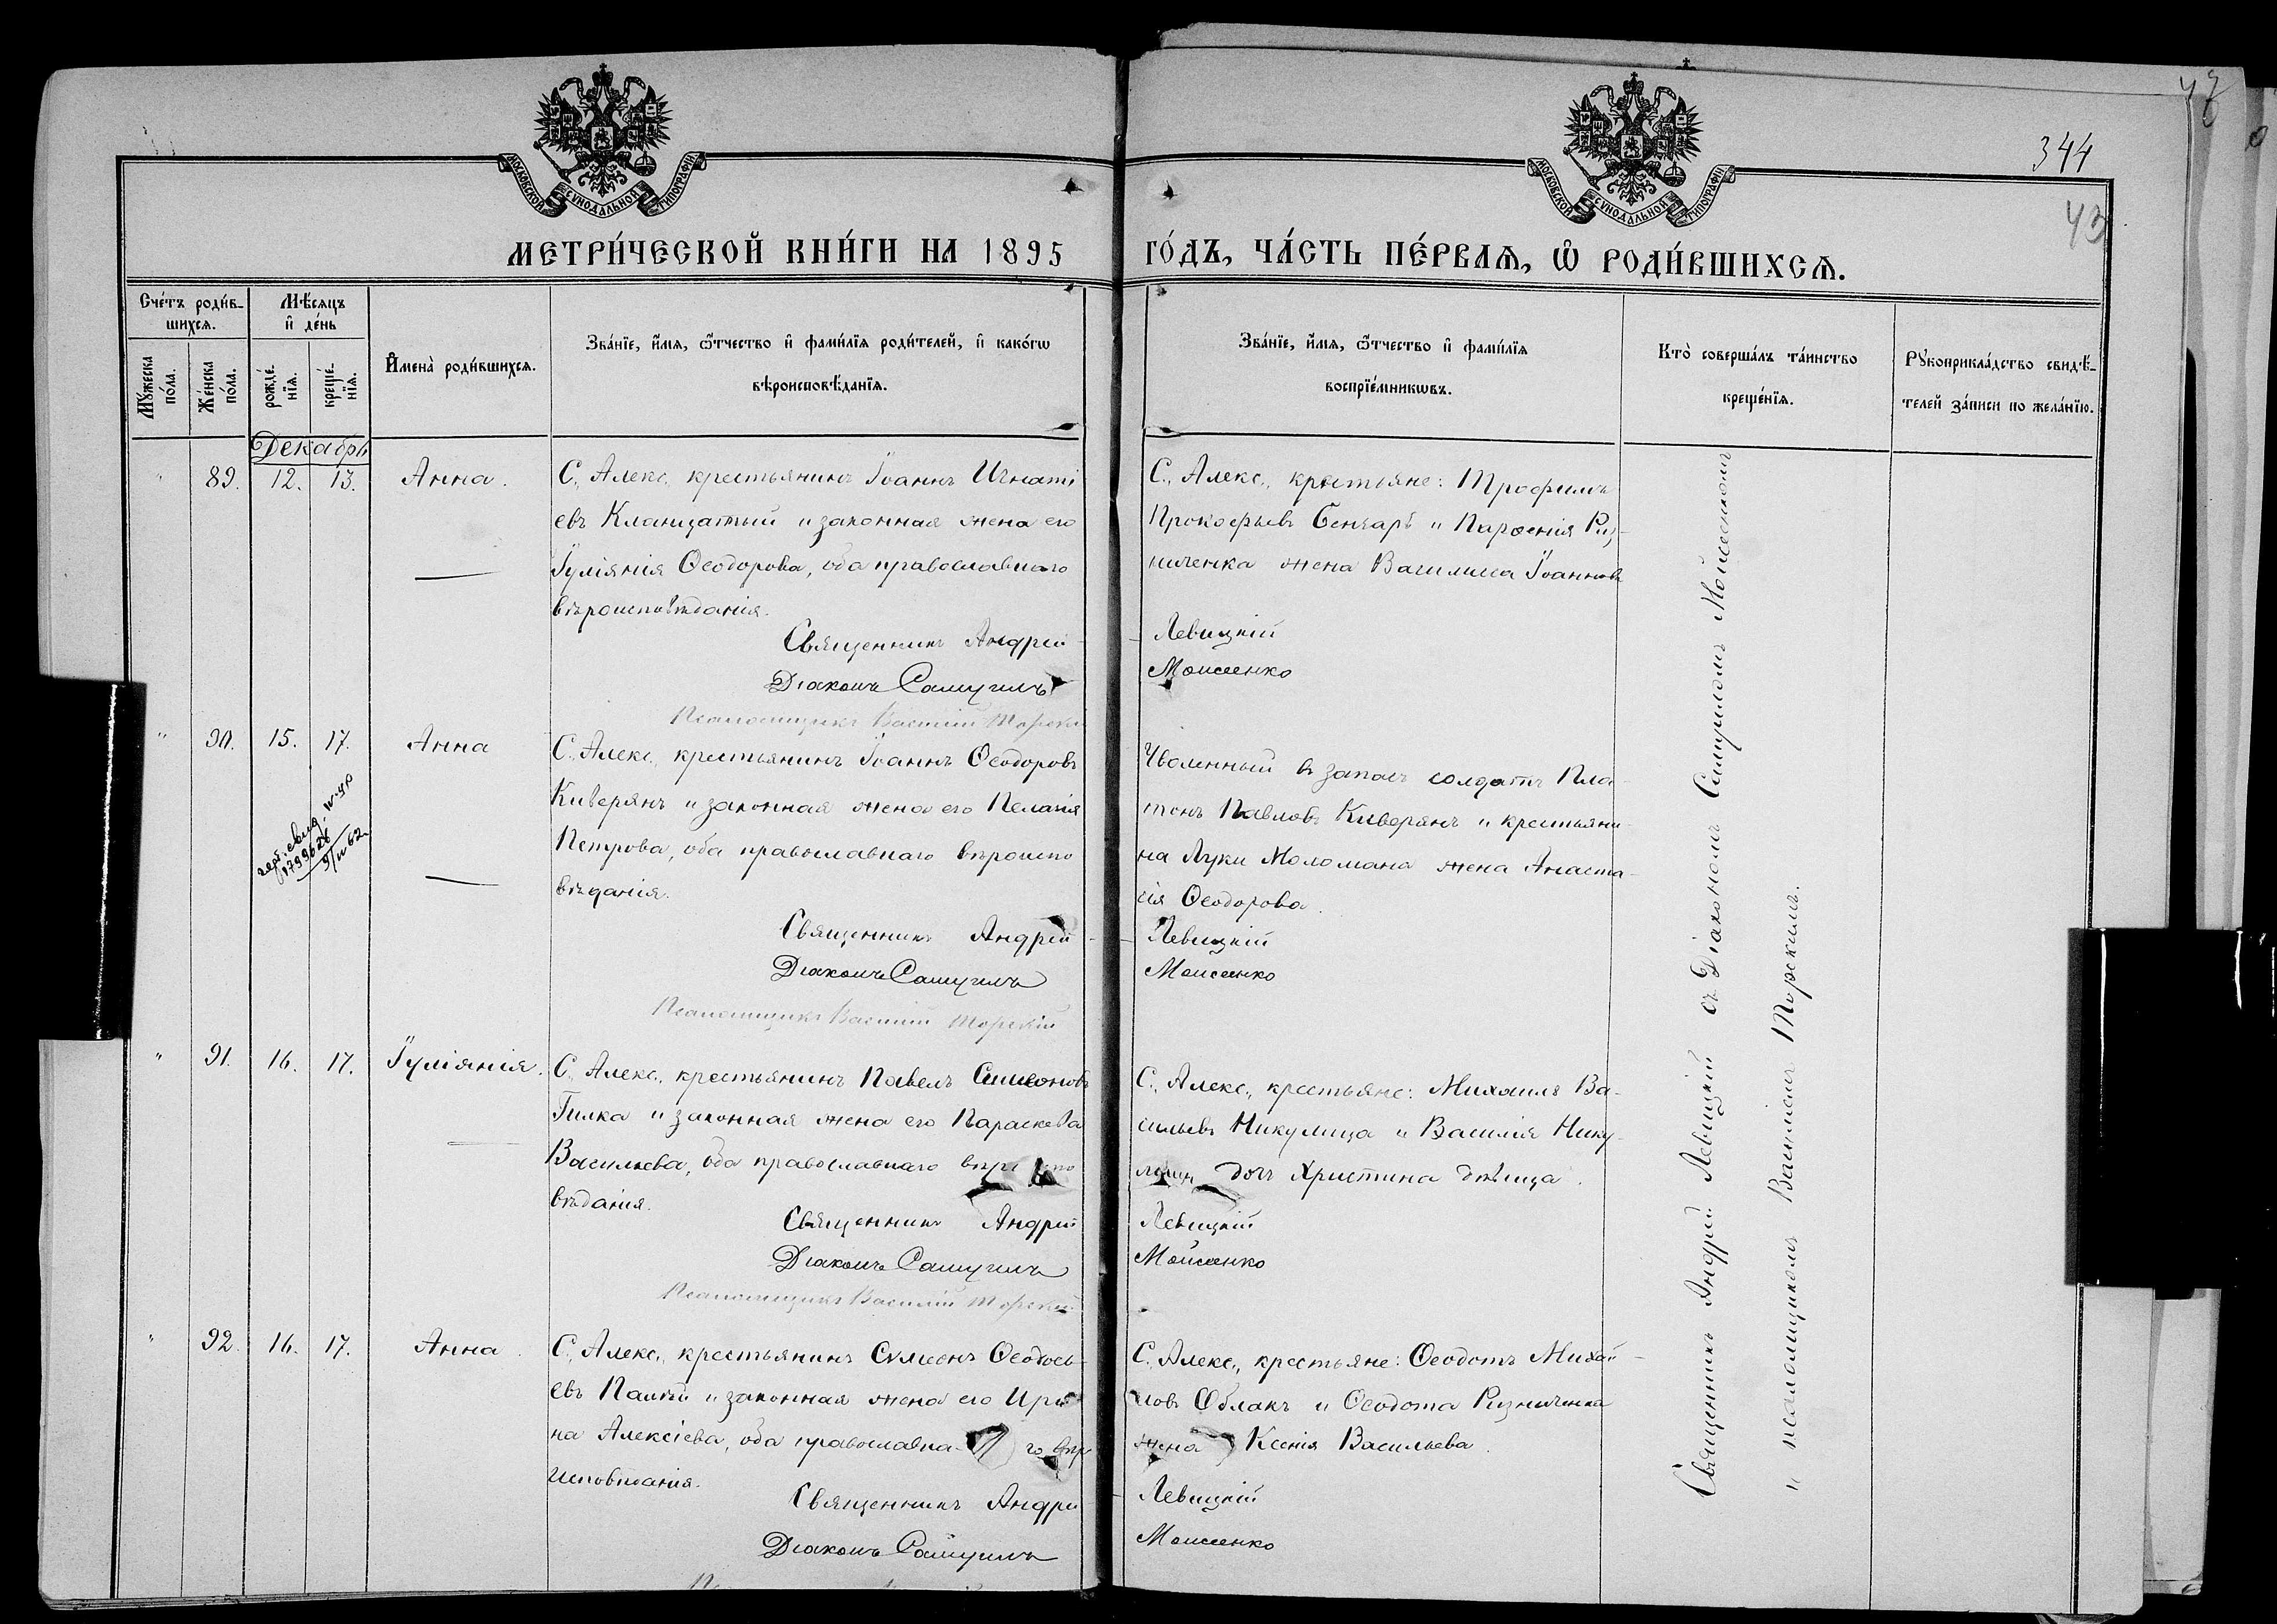 344
43
МОСКОВСКОЙ СѴНОДАЛЬНОЙ ТИПОГРАФІИ
МОСКОВСКОЙ СѴНОДАЛЬНОЙ ТИПОГРАФІИ
МЕТРИ́ЧЕСКОЙ КНИ́ГИ НА 1895 ГО́ДЪ, ЧА́СТЬ ПЕ́РВАѦ, Ѡ҆ РОДИ́ВШИХСѦ.
Сче́тъ роди́в-
шихсѧ.
Мꙋжеска по́ла.
Же́нска по́ла.
Мѣ́сѧцъ
и҆ де́нь
рожде́нїѧ.
креще́нїѧ.
И҆мена̀ роди́вшихсѧ.
Зва́нїе, и҆́мѧ, ѻ҆́тчество и҆ фами́лїѧ роди́телей, и҆ како́гѡ
вѣроисповѣ́данїѧ.
Зва́нїе, и҆́мѧ, ѻ҆́тчество и҆ фами́лїѧ
воспрїе́мникѡвъ.
Кто̀ соверша́лъ та́инство
креще́нїѧ.
Рꙋкоприкла́дство свидѣ́-
телей за́писи по жела́нїю.
Декабрь
" 89. 12. 13. Анна.
С. Алекс. крестьянинъ Іоаннъ Игнаті
евъ Кланцатый и законная жена его
Іуліанія Ѳеодорова, оба православнаго
вѣроисповѣданія.
Священникъ Андрей
Діаконъ Самуилъ
Псаломщикъ Василій Торскій
С. Алекс., крестьяне: Трофимъ
Прокофьевъ Бенгаръ и Парѳенія Риз-
ниченка жена Василиса Іоаннова
Левицкій
Моисеенко
" 90. 15. 17. Анна
С. Алекс. крестьянинъ Іоаннъ Ѳеодоровъ
Киверянъ и законная жена его Пелагія
Петрова, оба православнаго вѣроиспо
вѣданія.
Священникъ Андрій
Діаконъ Самуилъ
Псаломщикъ Василій Торскій
Уволенный въ запасъ солдатъ Пла-
тонъ Павловъ Киверянъ и крестьяни-
на Луки Моломана жена Анаста-
сія Ѳеодорова.
Левицкій
Моисеенко
" 91. 16. 17. Іуліанія.
С. Алекс., крестьянинъ Павелъ Симеоновъ
Гилка и законная жена его Параскева
Васильева, оба православнаго
вѣданія.
Священникъ Андрій
Діаконъ Самуилъ
Псаломщикъ Василій Торскій
С. Алекс., крестьяне: Михаилъ Ва-
сильевъ Никулица и Василія Нику-
дочь Христина дѣвица.
Левицкій
Моисеенко
" 92. 16. 17. Анна.
С. Алекс., крестьянинъ Симеонъ Ѳеодось-
евъ Палій и законная жена его Ири
на Алексіева, оба православна-го вѣро
исповѣданія.
Священникъ Андрій
Діаконъ Самуилъ
С. Алекс., крестьяне: Ѳеодотъ Михай-
ловъ Облакъ и Ѳеодота Ризниченка
жена Ксенія Васильева.
Левицкій
Моисеенко
Священникъ Андрій Левицкій съ Діакономъ Самуиломъ Моисеенкомъ
и псаломщикомъ Василіемъ Торскимъ.